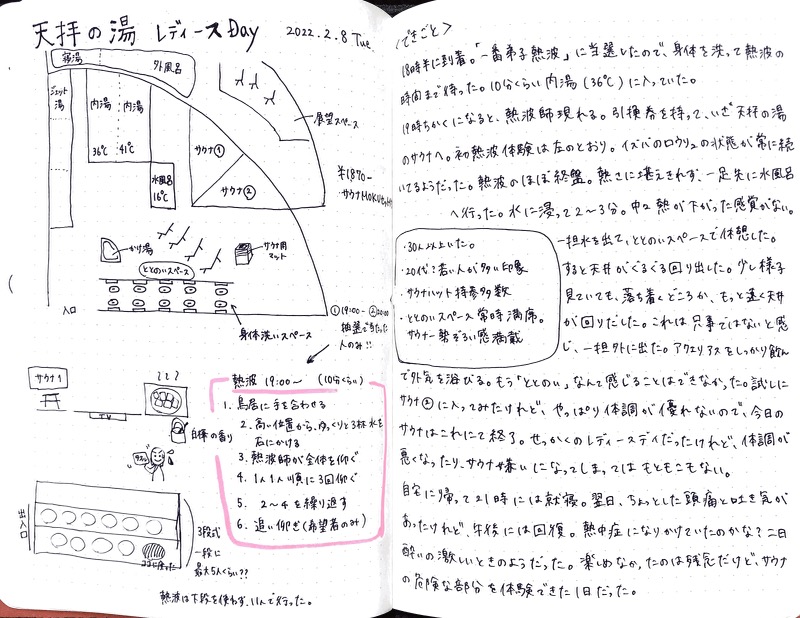 天拝の湯 レディースDay 2022.2.8 Tue.
寝湯
外風呂
ジェット湯
内湯
36℃
内湯
41℃
水風呂
16℃
サウナ①
サウナ②
展望スペース
¥1870-
かけ湯
ととのいスペース
サウナ用
マット
入口
身体洗いスペース
①19:00- ②20:00
抽選で当たった
人のみ!!
サウナ1
TV
白樺の香り
出入口
3段式
一段に
最大5人くらい??
ココに座った
熱波は下段を使わず、11人で行った。
熱波 19:00~ (10分くらい)
1. 鳥居に手を合わせる
2. 高い位置から、ゆっくりと3杯水を
石にかける
3. 熱波師が全体を仰ぐ
4. 1人1人順に3回仰ぐ
5. 2~4を繰り返す
6. 追い仰ぎ(希望者のみ)
<できごと>
18時半に到着。「一番弟子熱波」に当選したので、身体を洗って熱波の
時間まで待った。10分くらい内湯(36℃)に入っていた。
19時ちかくになると、熱波師現れる。引換券を持って、いざ天拝の湯
のサウナへ。初熱波体験は左のとおり。イズバのロウリュの状態が常に続
いてるようだった。熱波のほぼ終盤。熱さに堪えきれず、一足先に水風呂
へ行った。水に浸って2~3分。中々熱が下がった感覚がない。
・30人以上いた。
・20代?若い人が多い印象
・サウナハット持参多数
・ととのいスペース常時満席。
サウナー勢ぞろい感満載
一担水を出て、ととのいスペースで休憩した。
すると天井がぐるぐる回り出した。少し様子
見ていても、落ち着くどころか、もっと速く天井
が回りだした。これは只事ではないと感
じ、一担外に出た。アクエリアスをしっかり飲ん
で外気を浴びる。もう「ととのい」なんて感じることはできなかった。試しに
サウナ②に入ってみたけれど、やっぱり体調が優れないので、今日の
サウナはこれにて終了。せっかくのレディースデイだったけれど、体調が
悪くなったり、サウナ嫌いになってしまってはもともこもない。
自宅に帰って21時には就寝。翌日、ちょっとした頭痛と吐き気が
あったけれど、午後には回復。熱中症になりかけていたのかな?二日
酔いの激しいときのようだった。楽しめなかったのは残念だけど、サウナ
の危険な部分を体験できた1日だった。